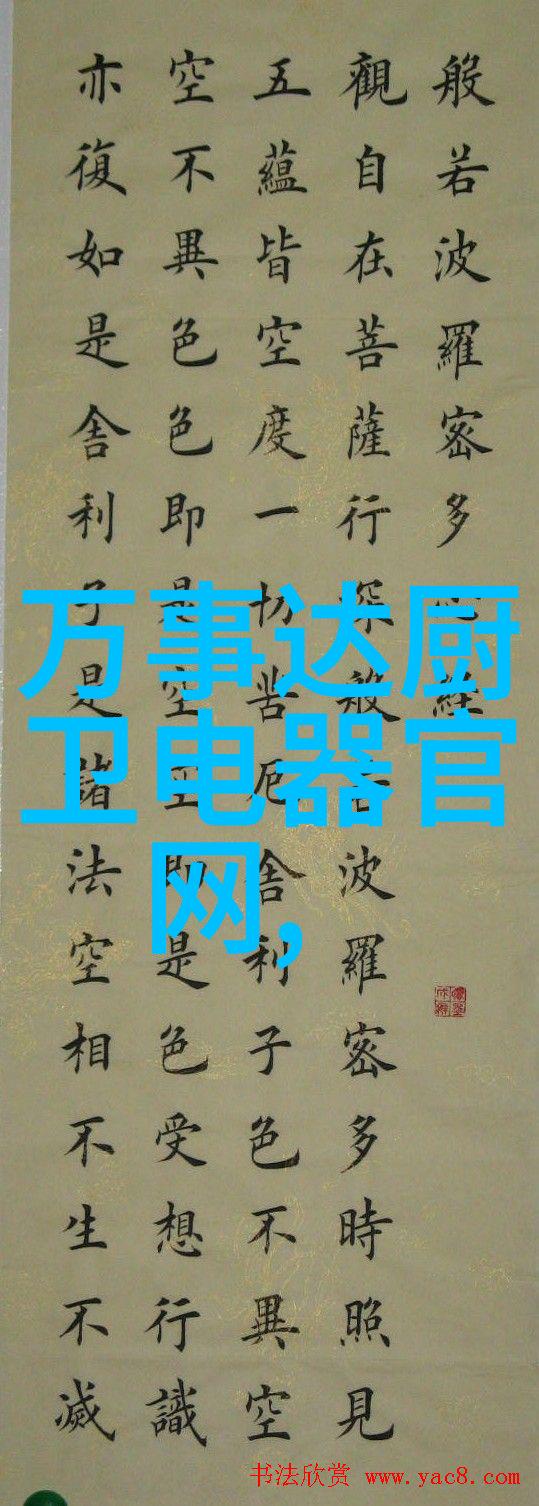 般若波羅密多心經
觀自在菩薩行深般若波羅密多時照見
五蘊皆空度一切苦厄舍利子色不異空
空不異色色即是空空即是色受想行識
亦復如是舍利子是諸法空相不生不滅
万事达厨
卫电器官
网,
书法欣赏 www.yac8.com